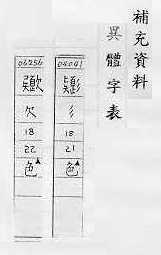 補充資料
異體字表
彡
18
21
色▲
欠
18
22
色▲